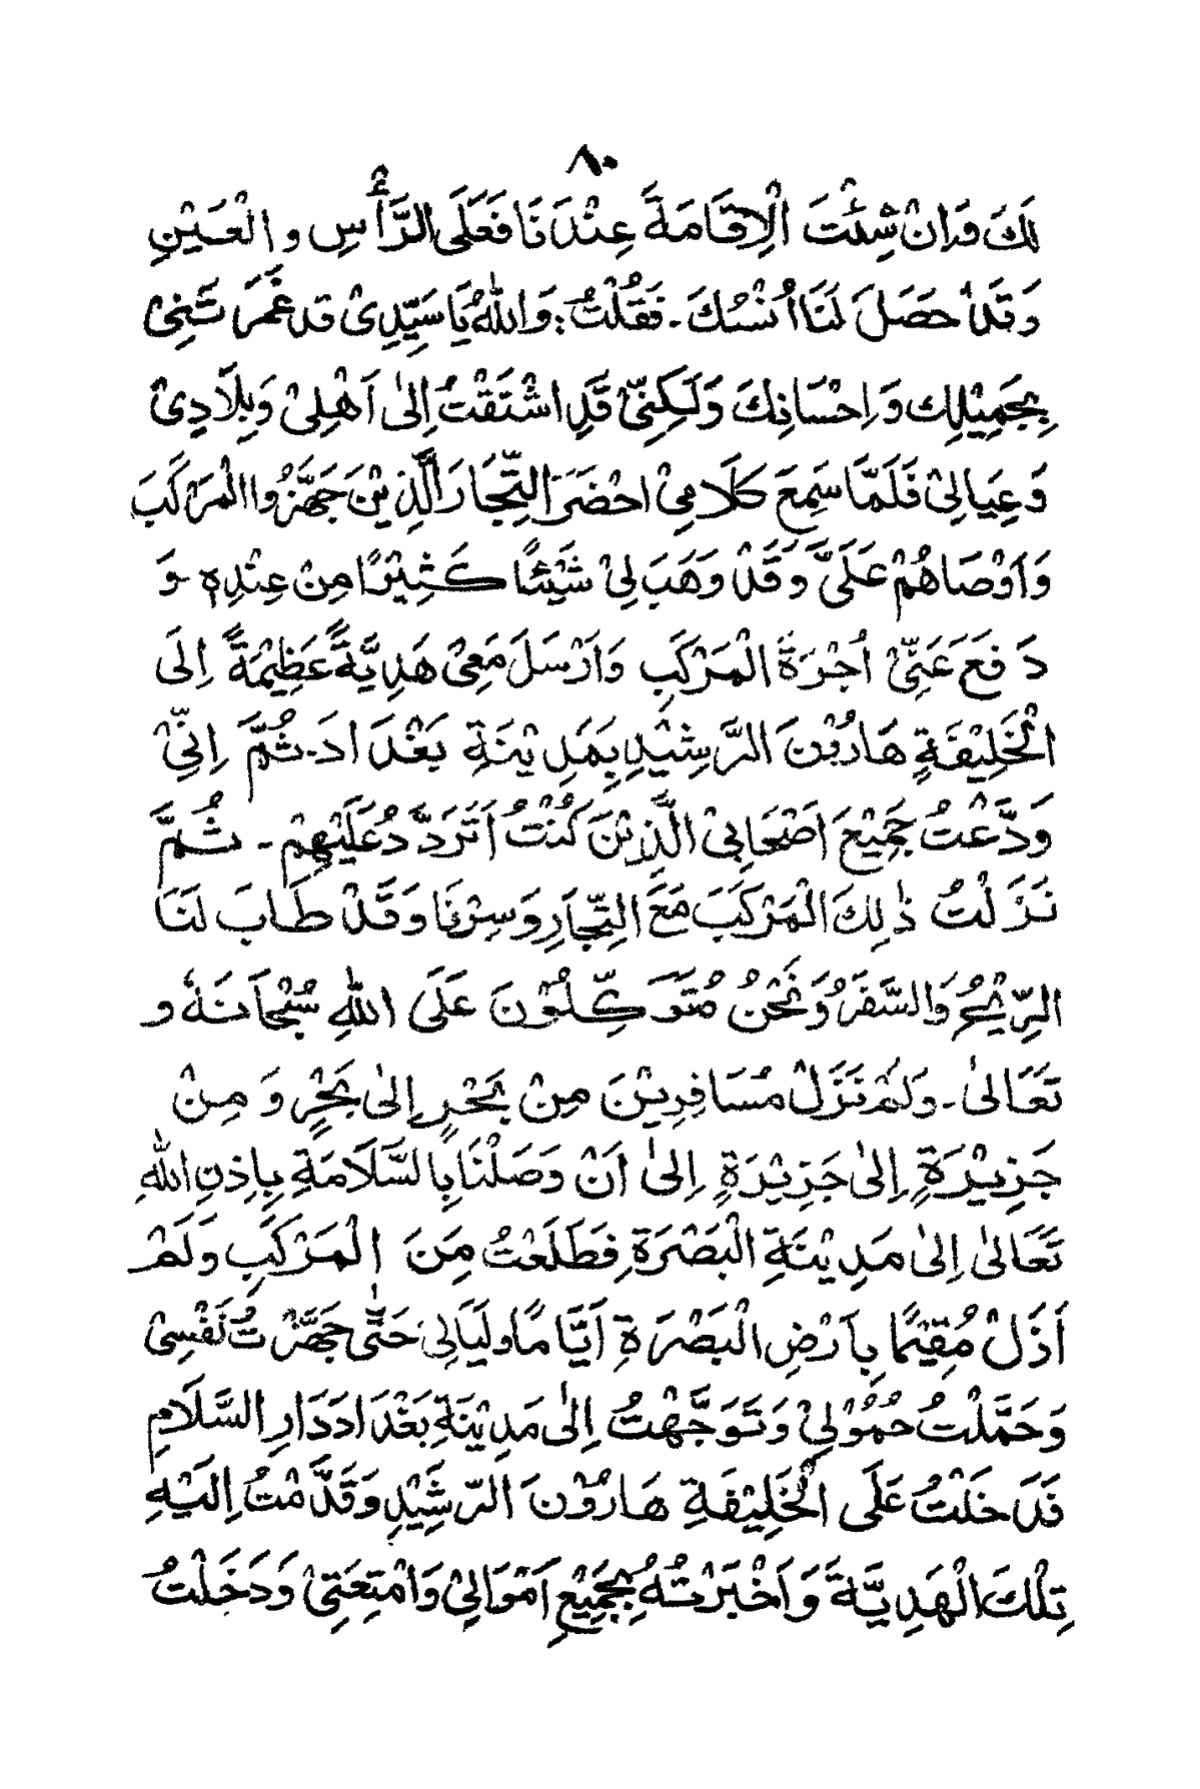 ٨٠
لَكَ وَاِنْ شِئْتَ الْاِقَامَةَ عِنْدَنَا فَعَلَى الرَّأْسِ وَالْعَيْنِ
وَقَدْ حَصَلَ لَنَا اُنْسُكَ ـ فَقُلْتُ: وَاللّٰهُ يَا سَيِّدِىْ قَدْ غَمَرَتَنِىْ
بِجَمِيْلِكَ وَاِحْسَانِكَ وَلَكِنِّىْ قَدِ اشْتَقْتُ اِلٰى اَهْلِىْ وَبِلَادِىْ
وَعِيَالِىْ فَلَمَّا سَمِعَ كَلَامِىْ احْضَرَ التِّجَارَ الَّذِيْنَ جَهَّزُوا الْمَرْكَبَ
وَاَوْصَاهُمْ عَلَىَّ وَقَدْ وَهَبَ لِىْ شَيْئًا كَثِيْرًا مِنْ عِنْدِهٖ وَ
دَفَعَ عَنِّىْ اُجْرَةَ الْمَرْكَبِ وَاَرْسَلَ مَعِىْ هَدِيَّةً عَظِيْمَةً اِلَى
الْخَلِيْفَةِ هَارُوْنَ الرَّشِيْدِ بِمَدِيْنَةِ بَغْدَادَ ـ ثُمَّ اِنِّىْ
وَدَّعْتُ جَمِيْعَ اَصْحَابِىْ الَّذِيْنَ كُنْتُ اَتَرَدَّدُ عَلَيْهِمْ ـ ثُمَّ
نَزَلْتُ ذٰلِكَ الْمَرْكَبَ مَعَ التِّجَارِ وَسِرْنَا وَقَدْ طَابَ لَنَا
الرِّيْحُ وَالسَّفَرُ وَنَحْنُ مُتَوَكِّلُوْنَ عَلَى اللّٰهِ سُبْحَانَهٗ وَ
تَعَالٰى ـ وَلَمْ نَزَلْ مُسَافِرِيْنَ مِنْ بَحْرٍ اِلٰى بَحْرٍ وَمِنْ
جَزِيْرَةٍ اِلٰى جَزِيْرَةٍ اِلٰى اَنْ وَصَلْنَا بِالسَّلَامَةِ بِاِذْنِ اللّٰهِ
تَعَالٰى اِلٰى مَدِيْنَةِ الْبَصْرَةِ فَطَلَعْتُ مِنَ الْمَرْكَبِ وَلَمْ
اَزَلْ مُقِيْمًا بِاَرْضِ الْبَصْرَةِ اَيَّامًا وَلَيَالِىَ حَتّٰى جَهَّزْتُ نَفْسِىْ
وَحَمَّلْتُ حُمُوْلِىْ وَتَوَجَّهْتُ اِلٰى مَدِيْنَةِ بَغْدَادَ دَارِ السَّلَامِ
فَدَخَلْتُ عَلَى الْخَلِيْفَةِ هَارُوْنَ الرَّشِيْدِ وَقَدَّمْتُ اِلَيْهِ
تِلْكَ الْهَدِيَّةَ وَاَخْبَرْتُهُ بِجَمِيْعِ اَمْوَالِىْ وَاَمْتِعَتِىْ وَدَخَلْتُ